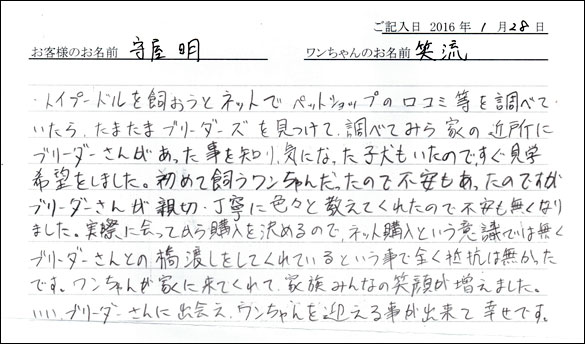 ご記入日 2016年 1月28日
お客様のお名前 守屋 明 ワンちゃんのお名前 笑流
・トイプードルを飼おうとネットでペットショップの口コミ等を調べて
いたら、たまたまブリーダーズを見つけて、調べてみら家の近所に
ブリーダーさんがあった事を知り、気になった子犬もいたのですぐ見学
希望をしました。初めて飼うワンちゃんだったので不安もあったのですが
ブリーダーさんが親切・丁寧に色々と教えてくれたので不安も無くなり
ました。実際に会ってから購入を決めるので、ネット購入という意識では無く
ブリーダーさんとの橋渡しをしてくれているという事で全く抵抗は無かった
です。ワンちゃんが家に来てくれて、家族みんなの笑顔が増えました。
いい、ブリーダーさんに出会え、ワンちゃんを迎える事が出来て幸せです。